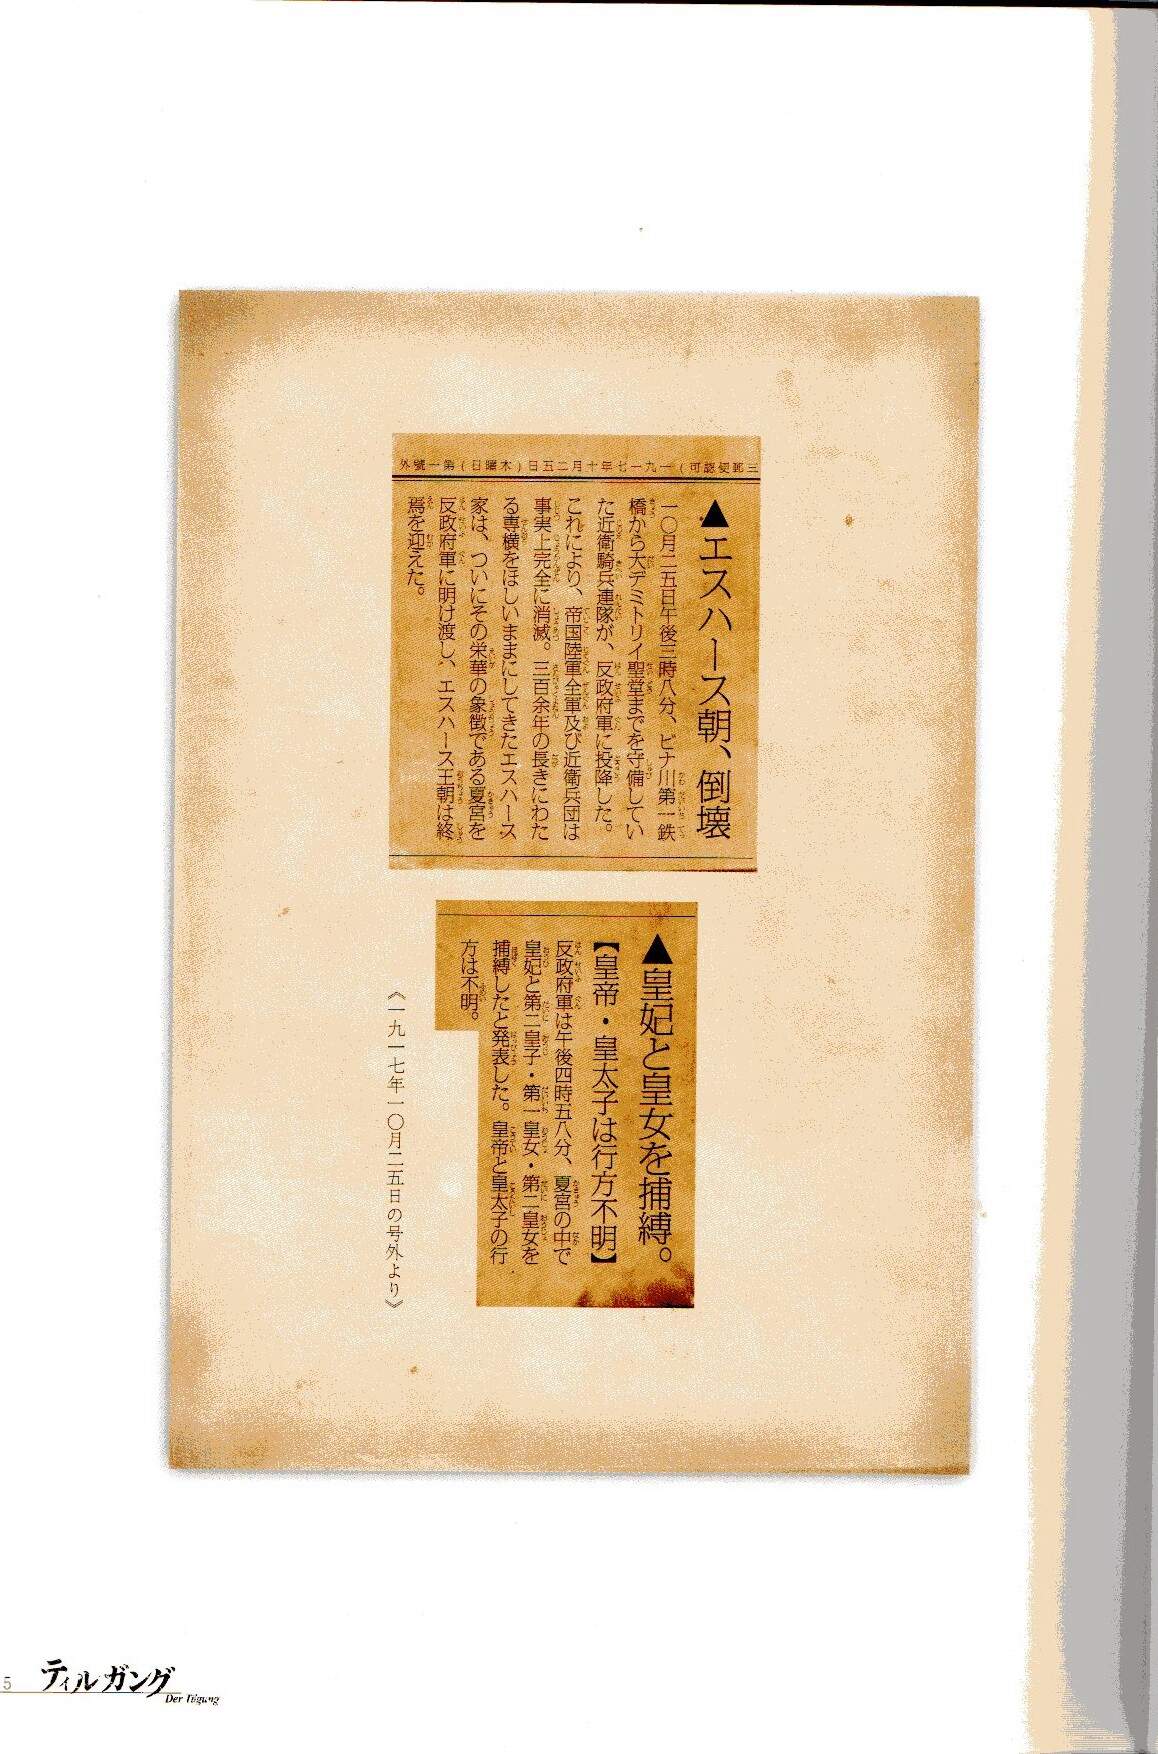 三郵便認可）一九一七年十月二五日（木曜日）第一號外
▲エスハース朝、倒壊
一〇月二五日午後三時八分、ビナ川第一鉄
橋から大デミトリイ聖堂までを守備してい
た近衛騎兵連隊が、反政府軍に投降した。
これにより、帝国陸軍全軍及び近衛兵団は
事実上完全に消滅。三百余年の長きにわた
る専横をほしいままにしてきたエスハース
家は、ついにその栄華の象徴である夏宮を
反政府軍に明け渡し、エスハース王朝は終
焉を迎えた。
▲皇妃と皇女を捕縛。
【皇帝・皇太子は行方不明】
反政府軍は午後四時五八分、夏宮の中で
皇妃と第二皇子・第一皇女・第二皇女を
捕縛したと発表した。皇帝と皇太子の行
方は不明。
《一九一七年一〇月二五日の号外より》
5
ティルガング